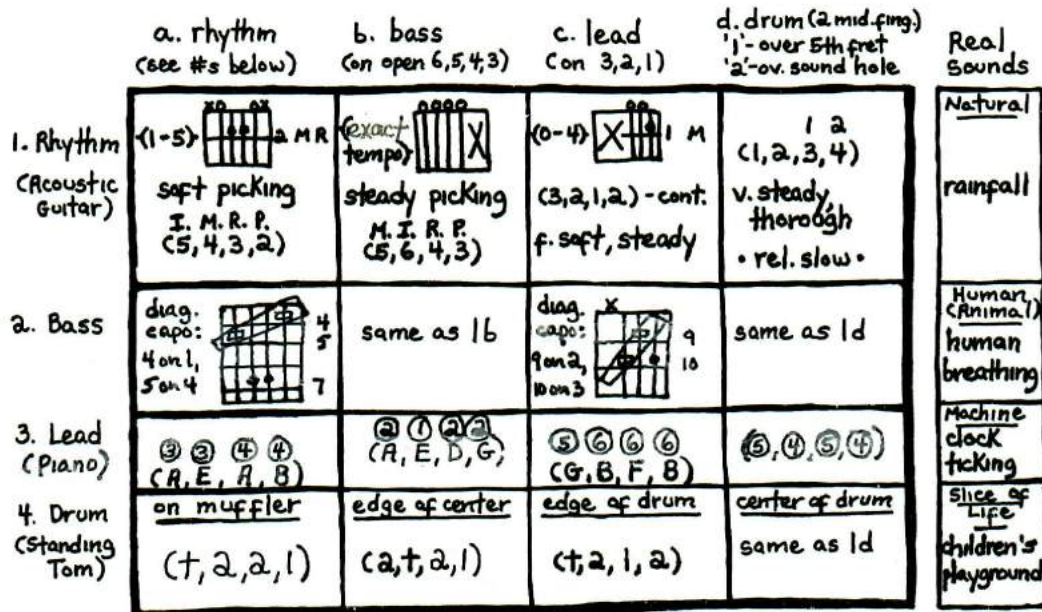 a. rhythm
(see #s below)
b. bass
(on open 6,5,4,3)
c. lead
(on 3,2,1)
d. drum (2 mid.fing.)
'1'-over 5th fret
'2'-ov. sound hole
Real
Sounds
1. Rhythm
(Acoustic
Guitar)
(1-5)
xo ox
2 M R
soft picking
I. M. R. P.
(5, 4, 3, 2)
(exact
tempo)
oooo
X
steady picking
M. I. R. P.
(5, 6, 4, 3)
(0-4)
oo
X
1 M
(3,2,1,2)-cont.
f. soft, steady
1 2
(1, 2, 3, 4)
v. steady,
thorough
• rel. slow •
Natural
rainfall
2. Bass
diag.
capo:
4 on 1,
5 on 4
4
5
7
same as 1b
diag.
capo:
9 on 2,
10 on 3
x
9
10
same as 1d
Human,
(Animal)
human
breathing
3. Lead
(Piano)
3 3 4 4
(A, E, A, B)
2 1 2 2
(A, E, D, G,
5 6 6 6
(G, B, F, B)
(5, 4, 5, 4)
Machine
clock
ticking
4. Drum
(Standing
Tom)
on muffler
(t, 2, 2, 1)
edge of center
(2, t, 2, 1)
edge of drum
(t, 2, 1, 2)
center of drum
same as 1d
Slice of
Life
children's
playground